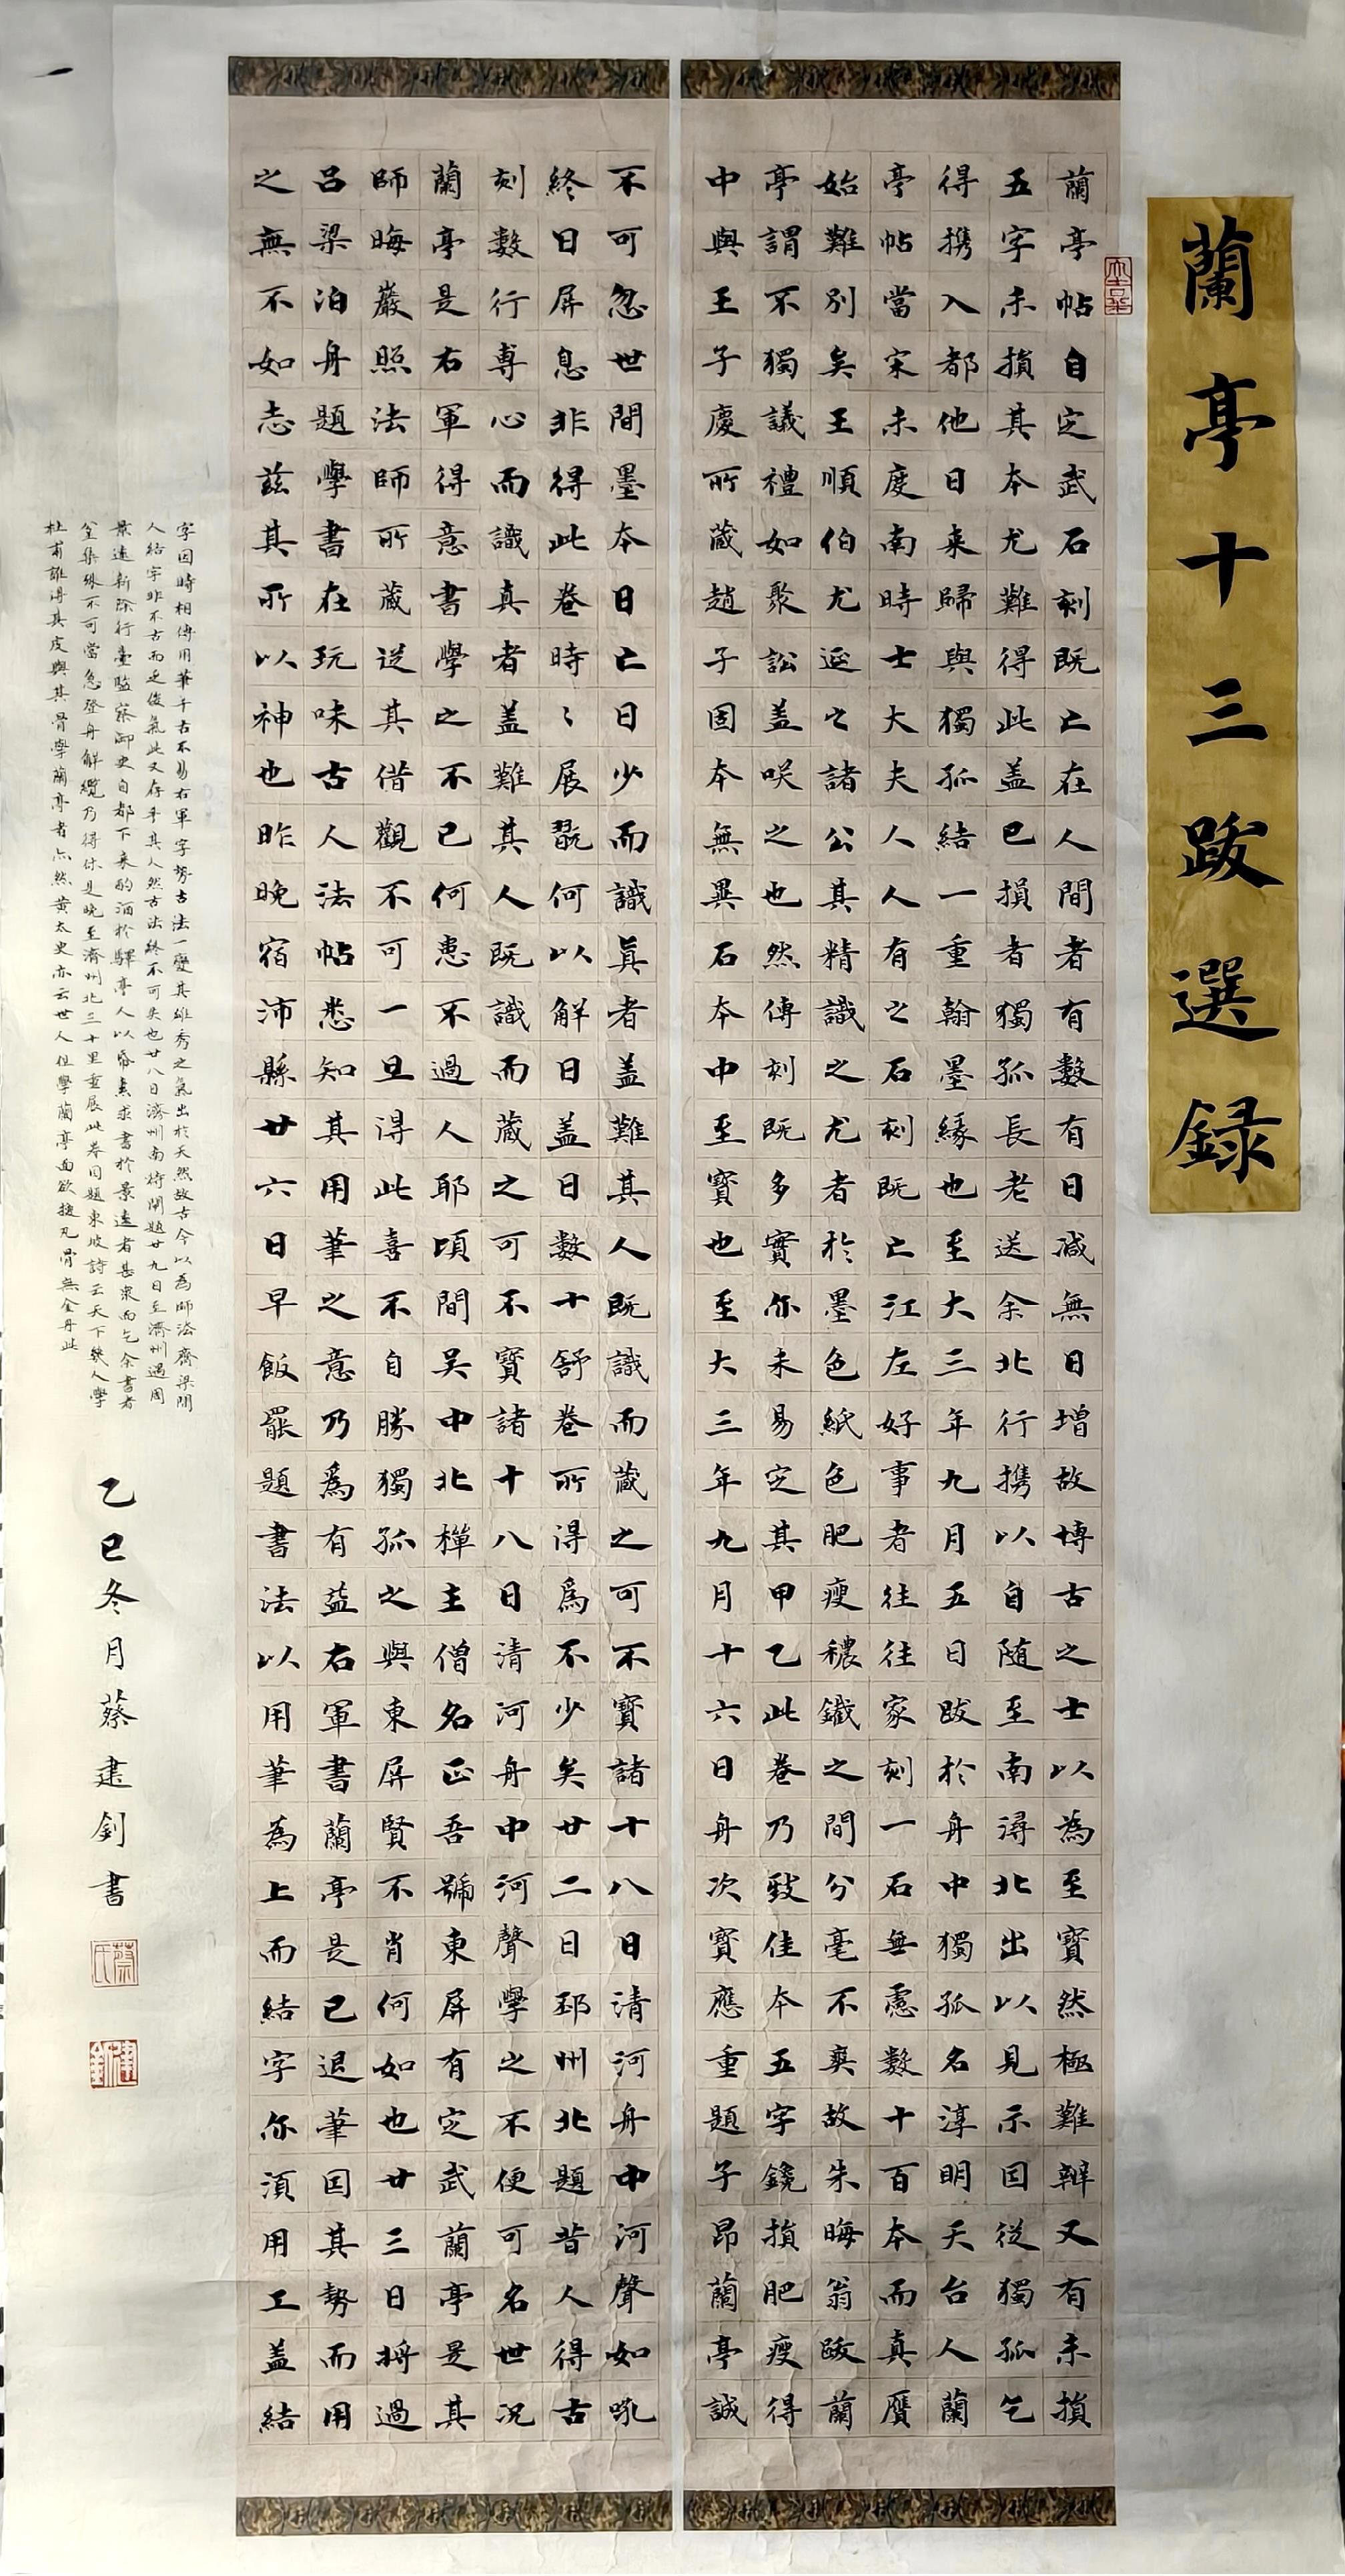 蘭亭十三跋選録
蘭亭帖自定武石刻既亡在人間者有數有日減無日增故博古之士以為至寶然極難辧又有未損
五字未損其本尤難得此盖已損者獨孤長老送余北行携以自随至南潯北出以見示因從獨孤乞
得携入都他日来歸與獨孤結一重翰墨緣也至大三年九月五日跋於舟中獨孤名淳明天台人蘭
亭帖當宋未度南時士大夫人人有之石刻既亡江左好事者往往家刻一石無慮數十百本而真贋
始難別矣王順伯尤延之諸公其精識之尤者於墨色紙色肥瘦穠鐵之間分毫不爽故朱晦翁跋蘭
亭謂不獨議禮如聚訟盖咲之也然傳刻既多實亦未易定其甲乙此卷乃致佳本五字鑱損肥瘦得
中與王子慶所藏趙子固本無異石本中至寶也至大三年九月十六日舟次寶應重題子昂蘭亭誠
不可忽世間墨本日亡日少而識真者盖難其人既識而藏之可不寶諸十八日清河舟中河聲如吼
終日屏息非得此卷時〻展翫何以解日盖日數十舒卷所得為不少矣廿二日邳州北題昔人得古
刻數行専心而識真者盖難其人既識而藏之可不寶諸十八日清河舟中河聲學之不便可名世况
蘭亭是右軍得意書學之不已何患不過人耶頃間吴中北禪主僧名正吾號東屏有定武蘭亭是其
師晦巖照法師所藏送其借觀不可一旦得此喜不自勝獨孤之與東屏賢不肖何如也廿三日将過
吕梁泊舟題學書在玩味古人法帖悉知其用筆之意乃為有益右軍書蘭亭是已退筆因其勢而用
之無不如志兹其所以神也昨晚宿沛縣廿六日早飯罷題書法以用筆為上而結字亦湏用工盖結
字因時相傳用筆千古不易右軍字勢古法一變其雄秀之氣出於天然故古今以為師法齊梁間
人結字非不古而乏俊氣此又存乎其人然古法終不可失也廿八日濟州南待閘題廿九日至濟州遇周
景遠新除行臺監察御史自都下来酌酒於驛亭人以帋素求書於景遠者甚衆而乞余書者
坌集殊不可當急登舟解纜乃得休是晚至濟州北三十里重展此卷因題東坡詩云天下幾人學
杜甫誰得其皮與其骨學蘭亭者亦然黄太史亦云世人但學蘭亭面欲換凡骨無金丹此
乙巳冬月蔡建釗書
蔡氏
建釗